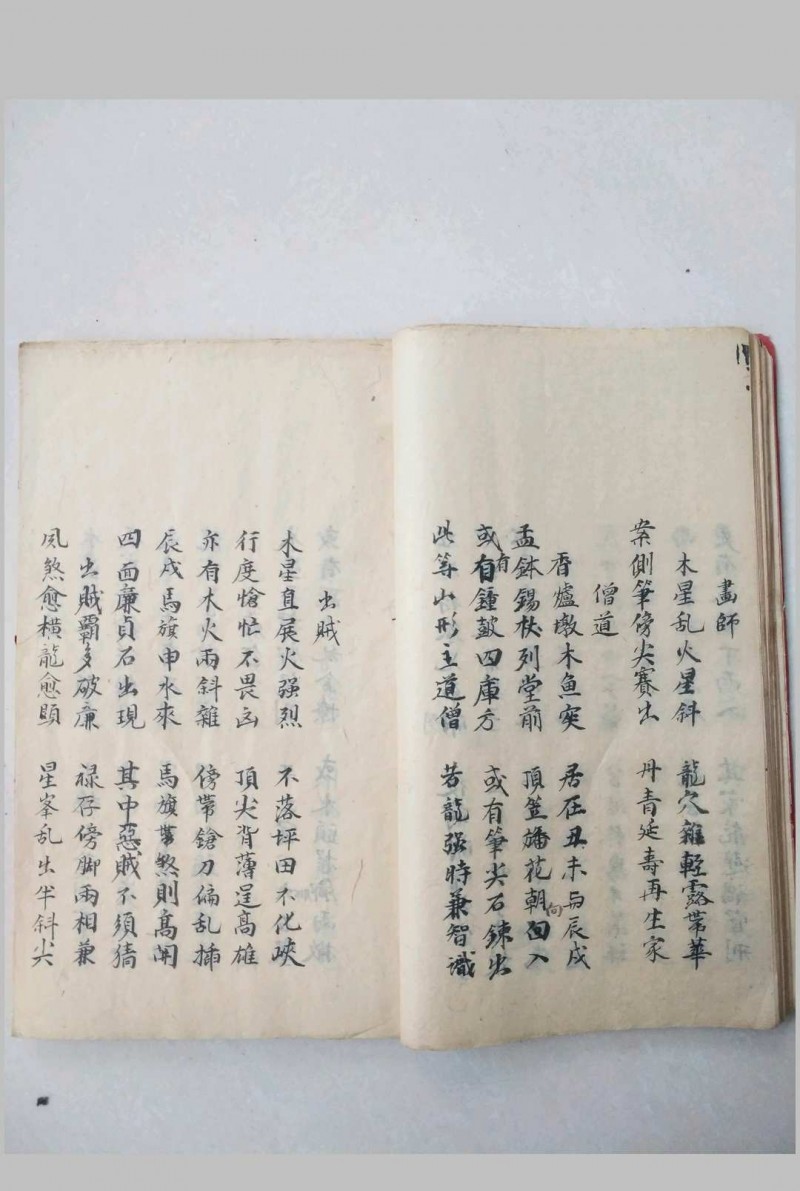 畫師
木星乱火星斜 龍穴雖輕露帶華
案側筆傍尖賽出 丹青延壽再生家
僧道
香爐墩木魚突 居在丑未与辰戌
盂鉢錫杖列堂前 頂笠旛花朝向回入
或有有鍾鼓四庫方 或有筆尖石鍊出
此等山形主道僧 若龍强時兼智識
出賊
木星直展火强烈 不落坪田不化峽
行度愴忙不畏凶 頂尖背薄逞高雄
亦有木火兩斜雜 傍帶鎗刀偏乱插
辰戌馬旗申水來 馬旗帶煞則髙開
四面廉貞石出現 其中惡賊不須猜
出賊霸多破廉 禄存傍脚兩相兼
風煞愈横龍愈顕 星峯乱出半斜尖